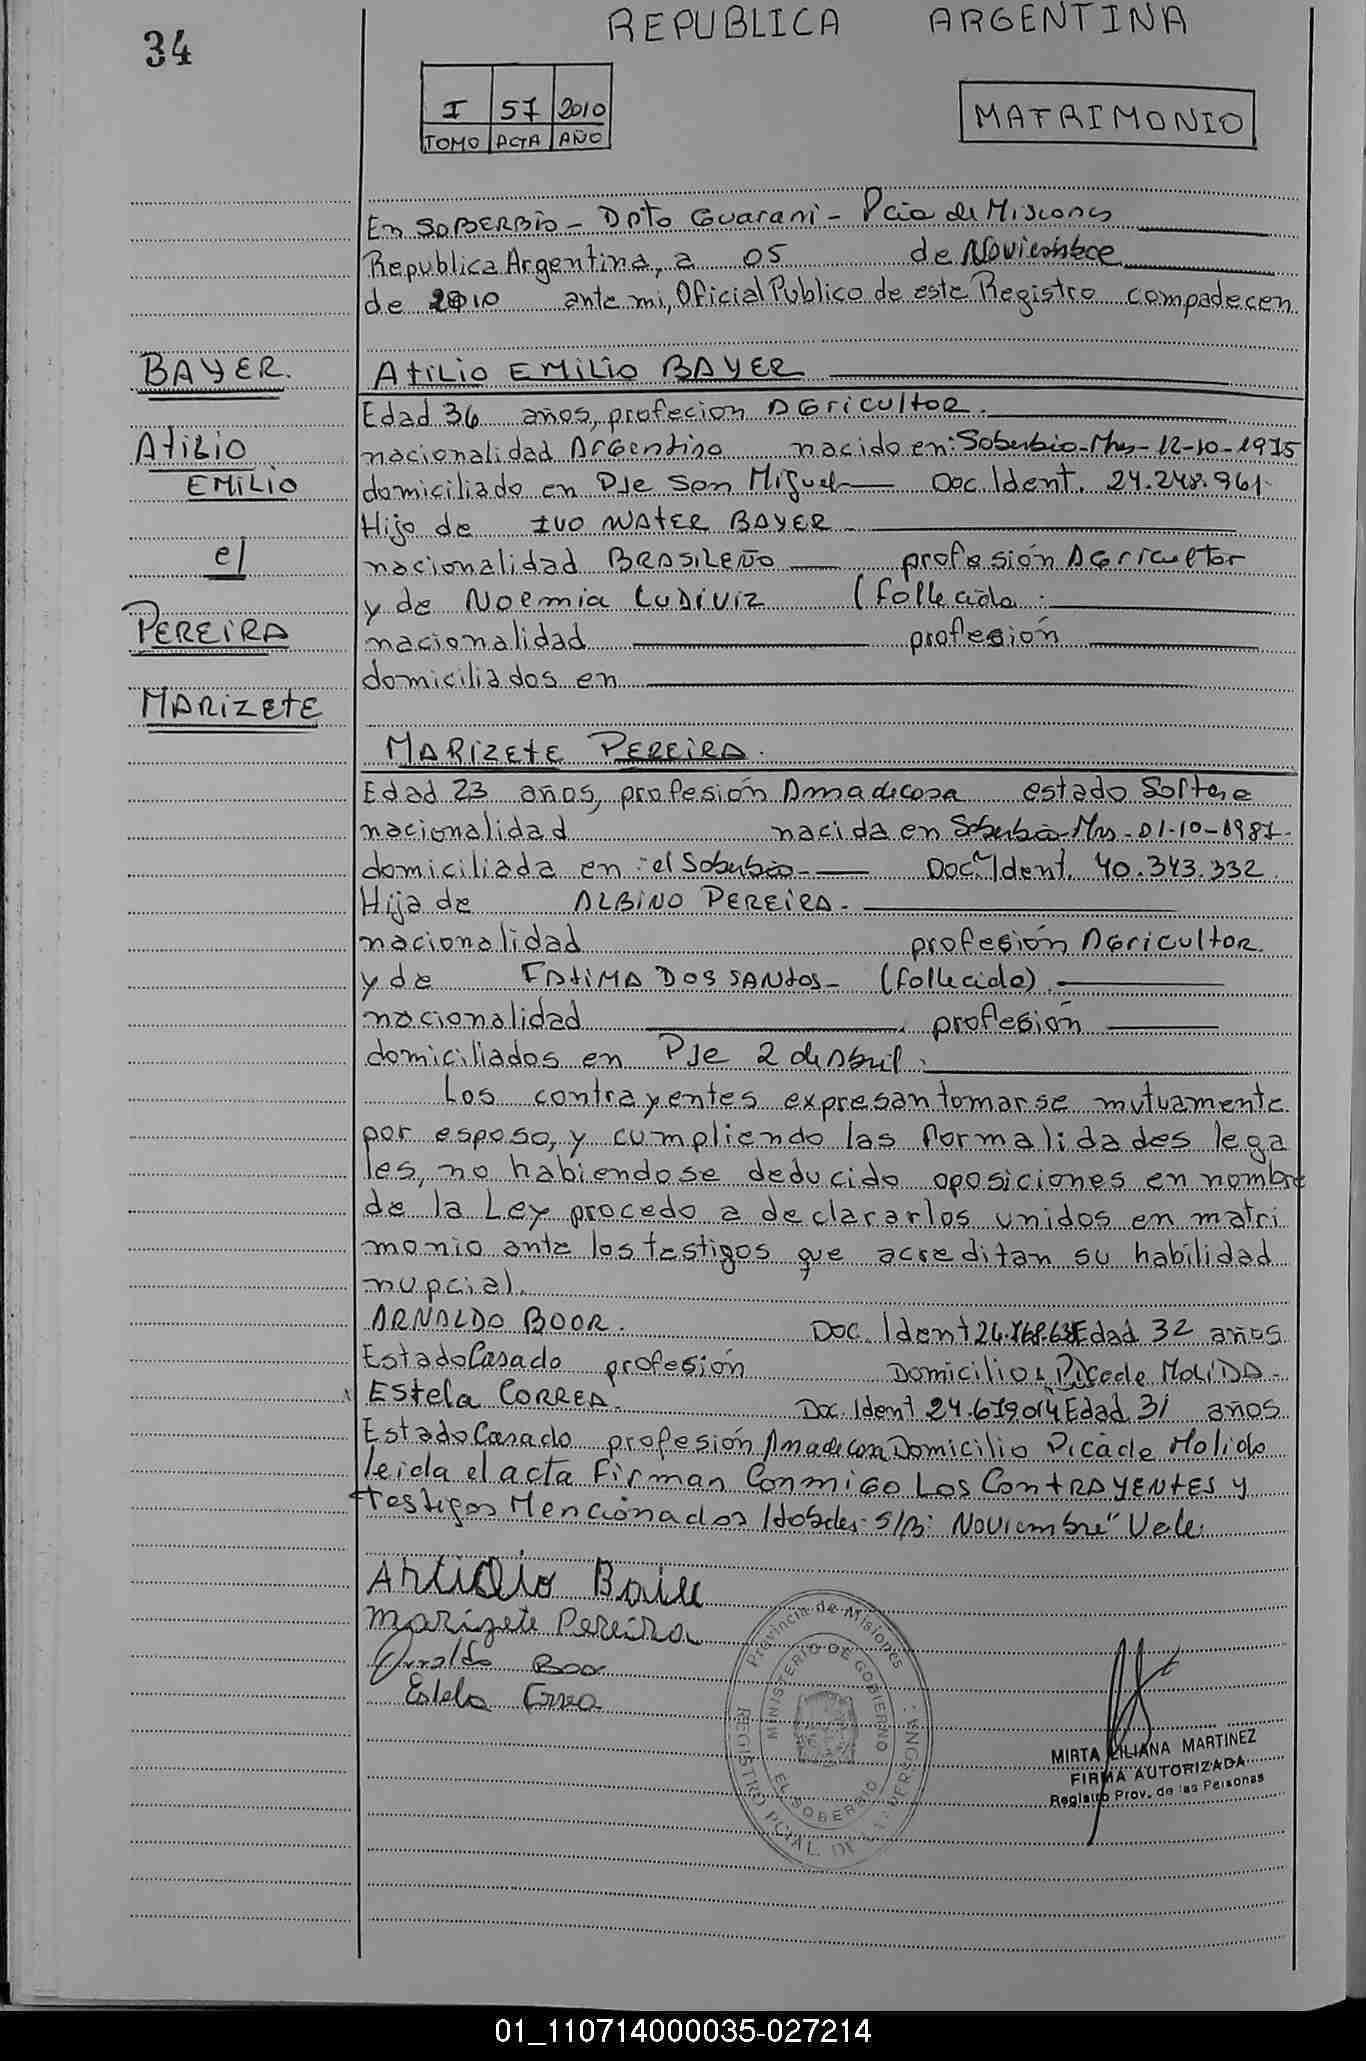 34
REPUBLICA ARGENTINA
I 57 2010
TOMO ACTA AÑO
MATRIMONIO
En SOBERBIO - Dpto Guarani - Pcia de Misiones
Republica Argentina, a 05 de Noviembre
de 2010 ante mi, Oficial Publico de este Registro compadecen
BAYER.
Atilio EMilio BAYER
Edad 36 años, profecion AGricultor.
Atilio
nacionalidad Argentino nacido en: Soberbio-Mnes-12-10-1975
EMiLiO
domiciliado en Pje San Miguel Doc. Ident. 24.248.961.
Hijo de IVO WATER BAYER
el
nacionalidad BRASILEÑO profesión AGricultor
y de Noemia LUDIVIZ (fallecida.
PEREIRA
nacionalidad profesión
domiciliados en
MARIZEtE
MARIZEtE PEREIRA.
Edad 23 años, profesión Amadecasa estado Soltera
nacionalidad nacida en Soberbio-Mns-01-10-1987-
domiciliada en: el Soberbio Doc. Ident. 40.343.332.
Hija de ALBINO PEREIRA.
nacionalidad profesión AGricultor.
y de FAtiMA DOS SANtos- (fallecida)
nacionalidad profesión
domiciliados en Pje 2 de Abril.
Los contrayentes expresan tomarse mutuamente
por esposo, y cumpliendo las formalidades lega
les, no habiendose deducido oposiciones en nombre
de la Ley procedo a declararlos unidos en matri
monio ante los testigos que acreditan su habilidad
nupcial.
ARNALDO BOOR. Doc. Ident Edad 32 años
Estado Casado profesión Domicilio
EStela CORREA. Doc. Ident 24.679014 Edad 31 años
Estado Casado profesión Amadecasa Domicilio Picade
leida el acta Firman Conmigo Los ContRAYENtES y
testigos Mencionados S/B: Noviembre" Vale.
Bayer
Marizete Pereira
Arnaldo Boor
Estela Correa
Provincia de Misiones
MINISTERIO DE GOBIERNO
EL SOBERBIO
REGISTRO PCIAL. DE LAS PERSONAS
MIRTA LILIANA MARTINEZ
FIRMA AUTORIZADA
Registro Prov. de las Personas
01_110714000035-027214